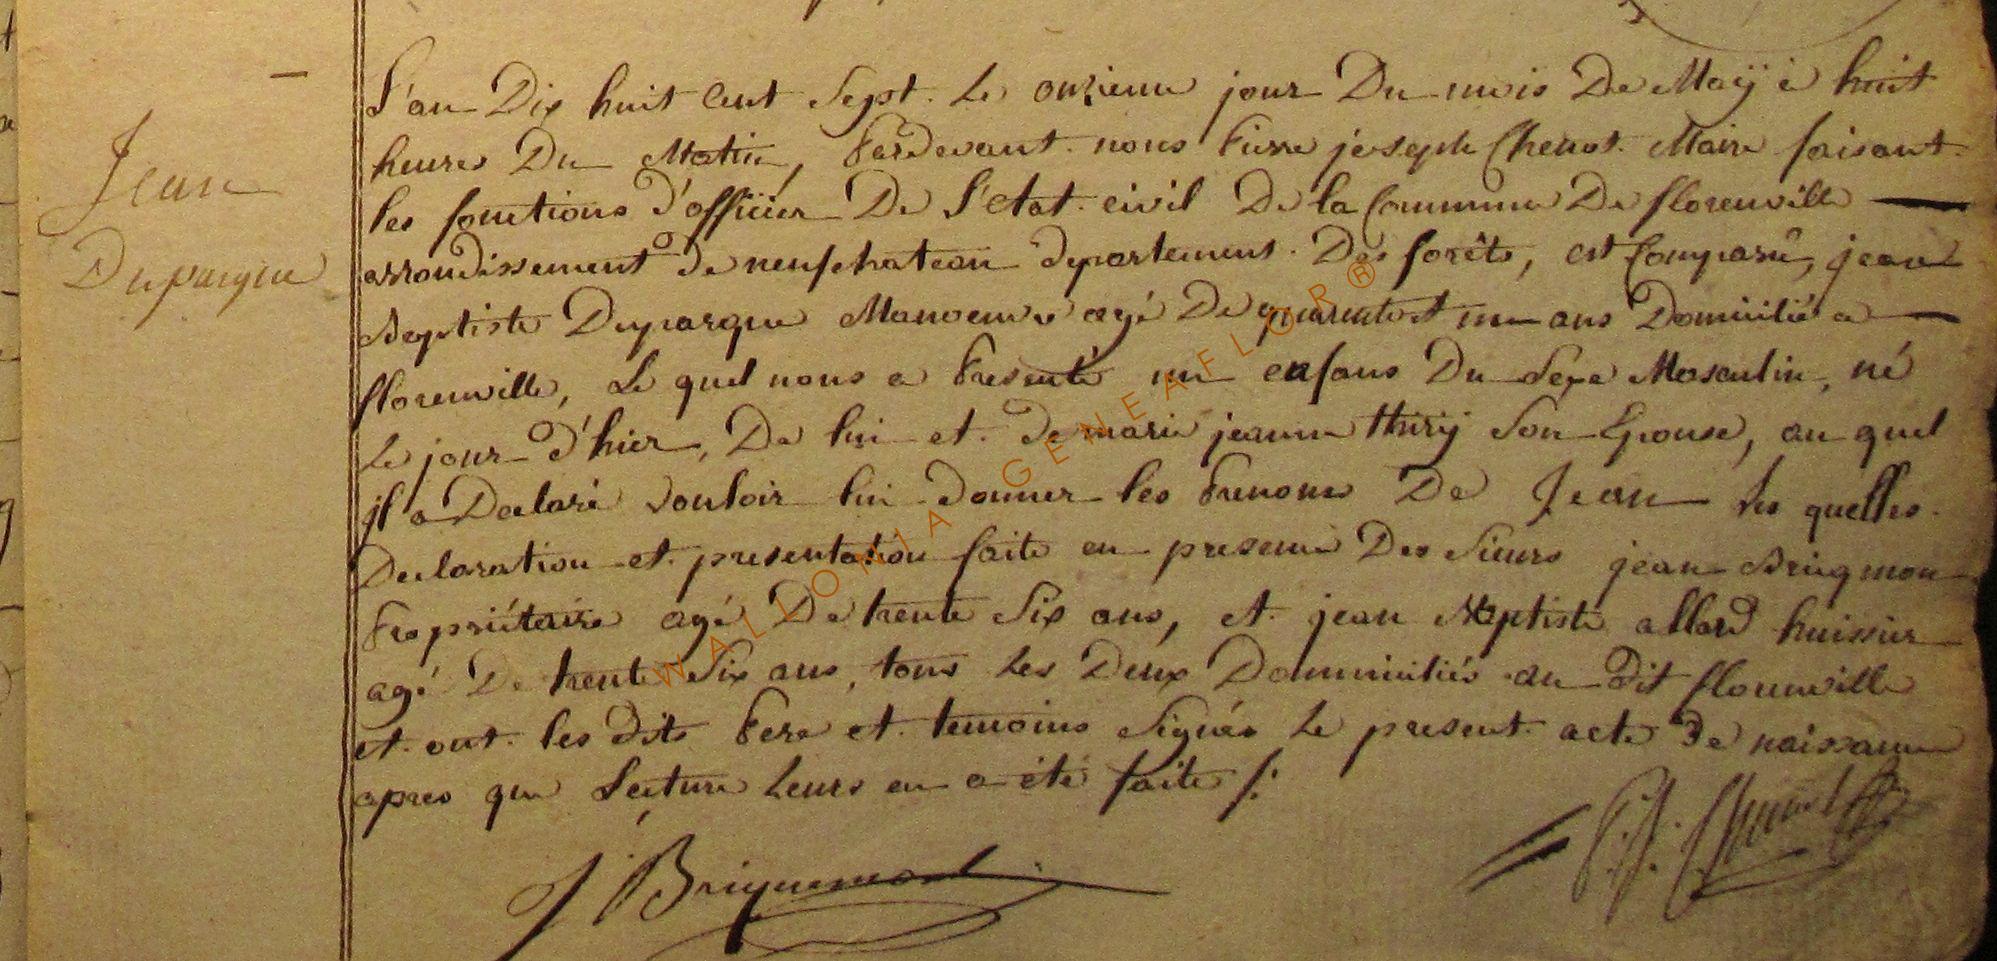 Jean
Duparque
L'an Dix huit Cent Sept. Le onzieme jour Du mois De Maÿ à huit
heures Du Matin, Pardevant nous Pierre joseph Chenot Maire faisant
les fonctions d'officier De l'etat civil De la Commune De florenville
arrondissement de neufchateau departement Des forêts, est Comparû, jean
Baptiste Duparque Manoeuvre agé De quarente et un ans Domicilié a
florenville, Le quel nous a Presenté un enfans Du Sexe Masculin, né
Le jour d'hier, De lui et de marie jeanne thiry Son Epouse, au quel
jl a Declaré Vouloir lui donner les Prenoms De Jean Les quelles
Declaration et presentation faite en presence Des Sieurs jean Bricqmon
Propriétaire agé De trente Six ans, et jean Baptiste allard huissier
agé De trente Six ans, tous Les Deux Dommiciliés au dit florenville
et ont les dits Pere et temoins Signés Le present acte de naissance
apres que Lecture Leurs en a été faite /:
J Briquemont
P. J. Chenot
WALLONIA GENEAFLOR®